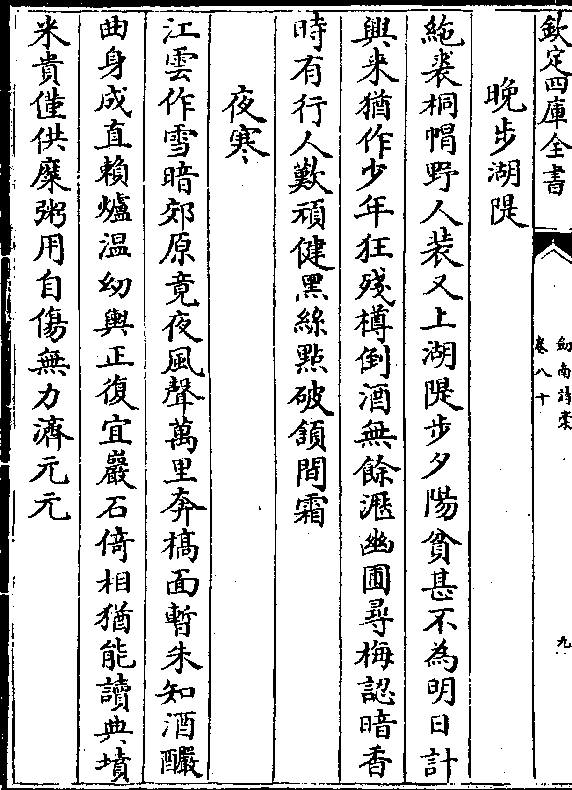 欽定四庫全書
劍南詩稾
卷八十
九
晩步湖隄
絁裘桐帽野人裝又上湖隄步夕陽貧甚不為明日計
興来猶作少年狂殘樽倒酒無餘瀝幽圃尋梅認暗香
時有行人歎頑健黑絲點破領間霜
夜寒
江雲作雪暗郊原竟夜風聲萬里奔槁面暫朱知酒釅
曲身成直賴爐溫幼輿正復宜巖石倚相猶能讀典墳
米貴僅供糜粥用自傷無力濟元元